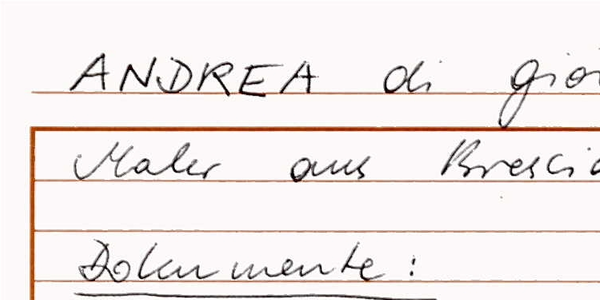 ANDREA di gio
Maler aus Brescia
Dokumente: